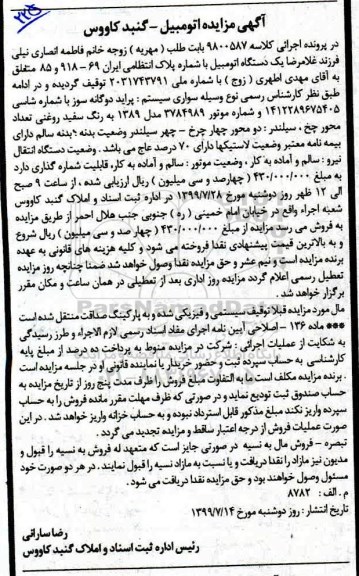 آگهی مزایده اتومبیل - گنبد کاووس
در پرونده اجرائی کلاسه ۹۸۰۰۵۸۷ بابت طلب ( مهریه ) زوجه خانم فاطمه انصاری نیلی
فرزند غلامرضا یک دستگاه اتومبیل با شماره پلاک انتظامی ایران ۶۹ - ۹۱۸ و ۸۵ متعلق
به آقای مهدی اطهری ( زوج ) با شماره ملی ۲۰۳۱۷۴۳۷۹۱ توقیف گردیده و در ادامه
طبق نظر کارشناس رسمی نوع وسیله سواری سیستم : پراید دوگانه سوز با شماره شاسی
۱۴۱۲۲۸۹۶۷۵۴۰۵ و شماره موتور ۳۷۸۴۹۸۹ مدل ۱۳۸۹ به رنگ سفید روغنی تعداد
محور چخ ، سیلندر : دو محور چهار چرخ - چهر سیلندر وضعیت بدنه : بدنه سالم دارای
بیمه نامه معتبر وضعیت لاستیکها دارای ۷۰ درصد عاج می باشد . وضعیت دستگاه انتقال
نیرو : سالم و آماده به کار ، وضعیت موتور : سالم و آماده به کار، قابلیت شماره گذاری دارد
به مبلغ ۴۳۰/۰۰۰/۰۰۰ ( چهارصد و سی میلیون ) ریال ارزیابی شده ، از ساعت ۹ صبح
الی ۱۲ ظهر روز دوشنبه مورخ ۱۳۹۹/۷/۲۸ در اداره ثبت اسناد و املاک گنبد کاووس
شعبه اجراء واقع در خیابان امام خمینی ( ره ) جنوبی جنب هلال احمر از طریق مزایده
به فروش می رسد مزایده از مبلغ ۴۳۰/۰۰۰/۰۰۰ ( چهار صد و سی میلیون ) ریال شروع
و به بالاترین قیمت پیشنهادی نقدا فروخته می شود و کلیه هزینه های قانونی به عهده
برنده مزایده است و نیم عشر و حق مزایده نقدا وصول خواهد شد ضمنا چنانچه روز مزایده
تعطیل رسمی اعلام گردد مزایده روز اداری بعد از تعطیلی در همان ساعت و مکان مقرر
برگزار خواهد شد .
مال مورد مزایده قبلا توقیف سیستمی و فیزیکی شده و به پارکینگ صداقت منتقل شده است
*** ماده ۱۳۶ - اصلاحی آیین نامه اجرای مفاد اسناد رسمی لازم الاجراء و طرز رسیدگی
به شکایت از عملیات اجرائی : شرکت در مزایده منوط به پرداخت ده درصد از مبلغ پایه
کارشناسی به حساب سپرده ثبت و حضور خریدار یا نماینده قانونی او در جلسه مزایده است
. برنده مزایده مکلف است مابه التفاوت مبلغ فروش را ظرف مدت پنج روز از تاریخ مزایده به
حساب صندوق ثبت تودیع نماید و در صورتی که ظرف مهلت مقرر مانده فروش را به حساب
سپرده واریز نکند مبلغ مذکور قابل استرداد نبوده و به حساب خزانه واریز خواهد شد . در این
صورت عملیات فروش از درجه اعتبار ساقط و مزایده تجدید می گردد .
تبصره - فروش مال به نسیه در صورتی جایز است که متعهد له فروش به نسیه را قبول و
مدیون نیز مازاد را نقدا دریافت و یا نسبت به مازاد نسیه را قبول نمایند . در هر دو صورت خود
مسئول وصول خواهند بود و حق مزایده نقدا دریافت می شود .
م . الف : ۸۷۸۲
تاریخ انتشار : روز دوشنبه مورخ ۱۳۹۹/۷/۱۴
رضا سارانی
رئیس اداره ثبت اسناد و املاک گنبد کاووس